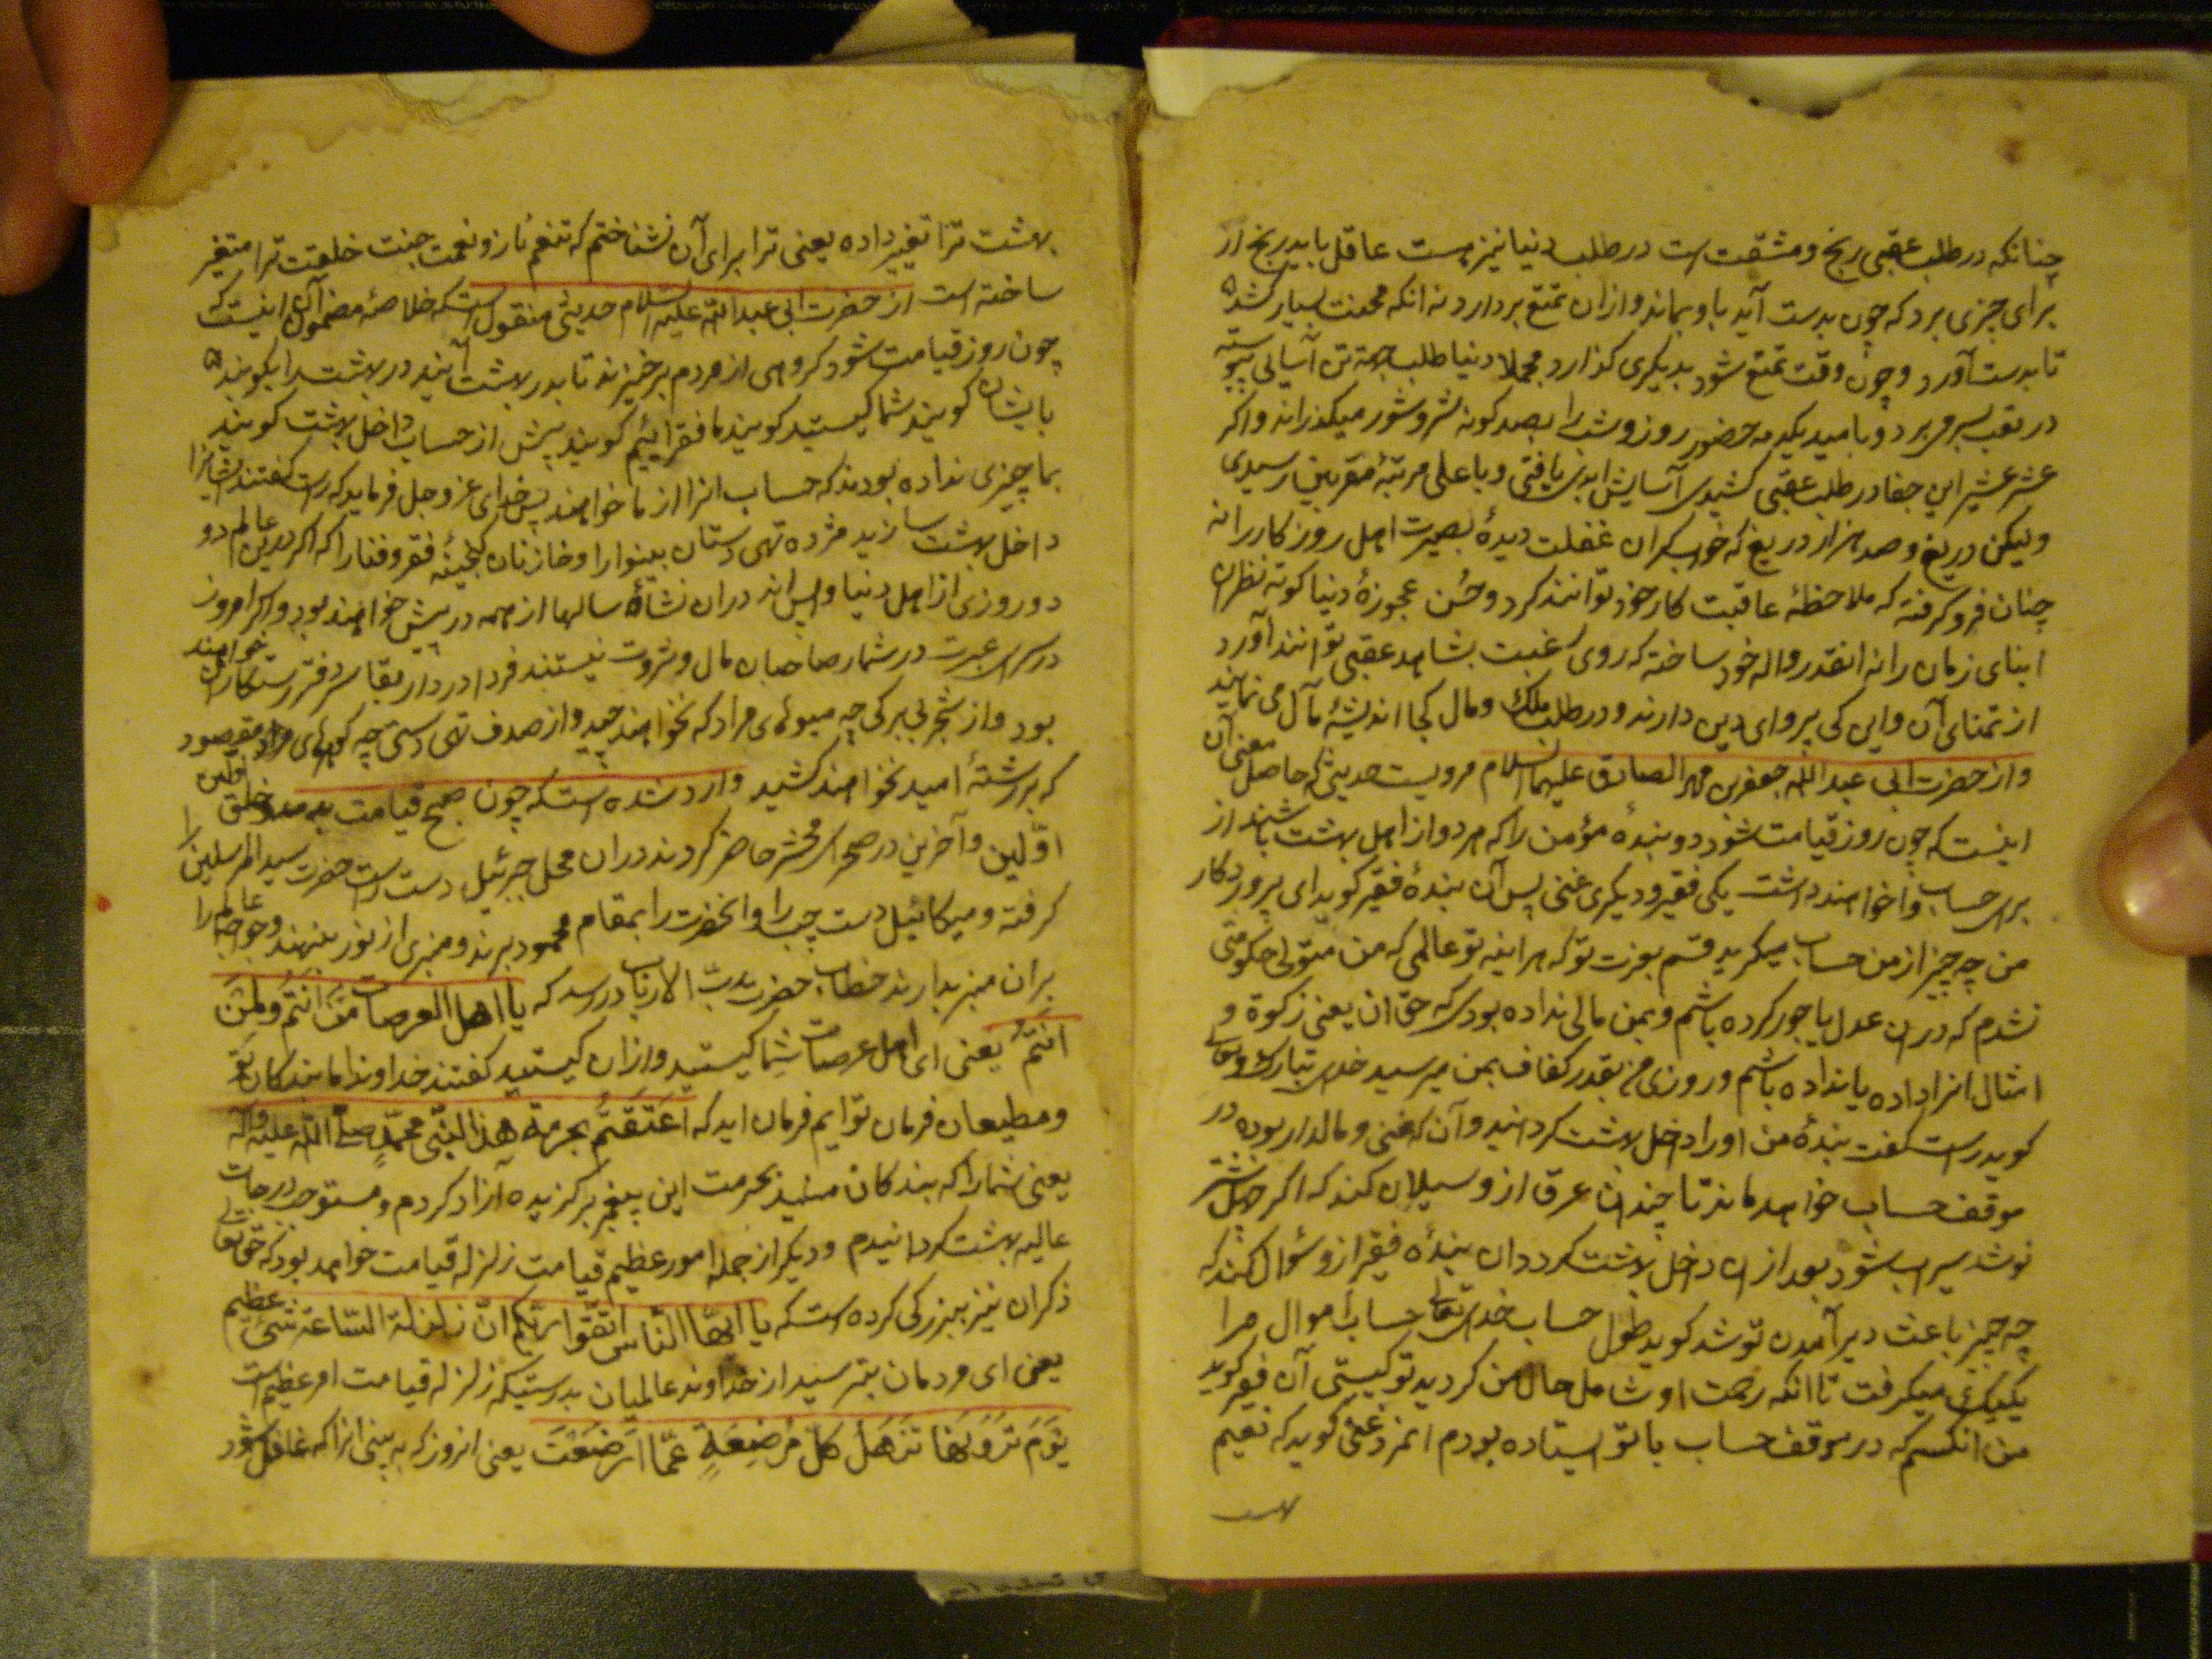 چنانکه در طلب عقبی رنج و مشقت است در طلب دنیا نیز هست عاقل باید رنج از
برای چیزی برد که چون بدست آید با و بماند و ازان تمتع بردارد نه انکه محنت بسیار کشد
تا بدست آورد و چون وقت تمتع شود بدیکری کذارد مجملا دنیا طلب بجهة تن آسانی پیوسته
در تعب بسر میبرد و بامید یکدمه حضور روز و شب را بصد کونه شر و شور میکذراند و اکر
عشر عشیر این جفا در طلب عقبی کشیدی آسایش ابدی یافتی و باعلی مرتبهٔ مقربین رسیدی
ولیکن دریغ و صد هزار دریغ که خواب کران غفلت دیدهٔ بصیرت اهل روزکار را نه
چنان فرو کرفته که ملاحظهٔ عاقبت کار خود توانند کرد و حسن عجوزهٔ دنیا کوته نظران
ابنای زمان را نه انقدر واله خود ساخته که روی رغبت بشاهد عقبی توانند آورد
از تمنای آن و این کی پروای دین دارند و در طلب ملک و مال کجا اندیشهٔ مآل می نمایند
و از حضرت ابی عبد الله جعفر بن محمد الصادق علیهما السلام مرویست حدیثی که حاصل معنی آن
اینست که چون روز قیامت شود دو بندهٔ مؤمن را که هر دو از اهل بهشت باشند از
برای حساب وا خواهند داشت یکی فقیر و دیکری غنی پس آن بندهٔ فقیر کوید ای پروردکار
من چه چیز از من حساب میکرید قسم بعزت تو که هر اینه تو عالمی که من متولی حکومتی
نشدم که دران عدل یا جور کرده باشم و بمن مالی نداده بودی که حق ان یعنی زکوة و
امثال انرا داده یا نداده باشم و روزی من بقدر کفاف بمن میرسید خدای تبارک و تعالی
کوید راست کفت بندهٔ من او را داخل بهشت کردانید و آن که غنی و مالدار بوده در
موقف حساب خواهد ماند تا چندان عرق ازو سیلان کند که اکر چهل شتر
نوشد سیراب شود بعد ازان داخل بهشت کردد ان بندهٔ فقیر ازو سؤال کند که
چه چیز باعث دیر آمدن تو شد کوید طول حساب خدای تعالی حساب اموال مرا
یکیک میکرفت تا انکه رحمت او شامل حال من کردید تو کیستی آن فقیر کوید
من انکسم که در موقف حساب با تو استاده بودم انمرد غنی کوید که نعیم
بهشت
بهشت ترا تغییر داده یعنی ترا برای آن نشناختم که تنعم ناز و نعمت جنت خلقت ترا متغیر
ساخته است از حضرت ابی عبد الله علیه السلام حدیثی منقول است که خلاصهٔ مضمون آن اینست که
چون روز قیامت شود کروهی از مردم برخیزند تا بدر بهشت آیند در بهشت را بکوبند
بایشان کویند شما کیستید کویند ما فقرائیم کویند پیش از حساب داخل بهشت کویند
بما چیزی نداده بودند که حساب انرا از ما خواهند پس خدای عز و جل فرماید که راست کفتند ایشانرا
داخل بهشت سازید مژده تهی دستان بینوا را و خازنان کنجینهٔ فقر و فنا را که اکر درین عالم دو
دو روزی از اهل دنیا واپس اند دران نشأه سالها از همه در پیش خواهند بود و اکر امروز
درسرای عبرت در شمار صاحبان مال و ثروت نیستند فردا در دار بقا سر دفتر رستکاران خواهند
بود و از شجر بی برکی چه میوهای مراد که نخواهند چید و از صدف تهی دستی چه کوهرهای مراد مقصود
که بر رشتهٔ امید نخواهند کشید وارد شده است که چون صبح قیامت بدمد و خلق اولین
اوّلین و آخرین در صحرای محشر حاضر کردند دران محل جبرئیل دست راست حضرت سید المرسلین را
کرفته و میکائیل دست چپ را و انحضرت را بمقام محمود برند و منبری از نور بنهند و خواجه عالم را
بران منبر بدارند خطاب حضرت رب الارباب در رسد که یا اهل العرصات من انتم و لمن
انتم یعنی ای اهل عرصات شما کیستید و ازان کیستید کفتند خداوندا ما بندکان تو
و مطیعان فرمان توایم فرمان اید که اعتقتم بحرمة هذا النبی محمد صلی الله علیه و آله
یعنی شما را که بندکان منید بحرمت این پیغمبر برکزیده آزاد کردم و مستوجب درجات
عالیه بهشت کردانیدم و دیکر از جمله امور عظیم قیامت زلزله قیامت خواهد بود که حق تعالی
ذکر ان نیز ببزرکی کرده است که یا ایها الناس اتقوا ربکم ان زلزلة الساعة شیء عظیم
یعنی ای مردمان بترسید از خداوند عالمیان بدرستیکه زلزله قیامت امر عظیم است
یَومَ تَرَونَها تَذهَلُ کُلُّ مُرضِعَةٍ عَمّا اَرضَعَت یعنی انروز که به بینی انرا که غافل شود